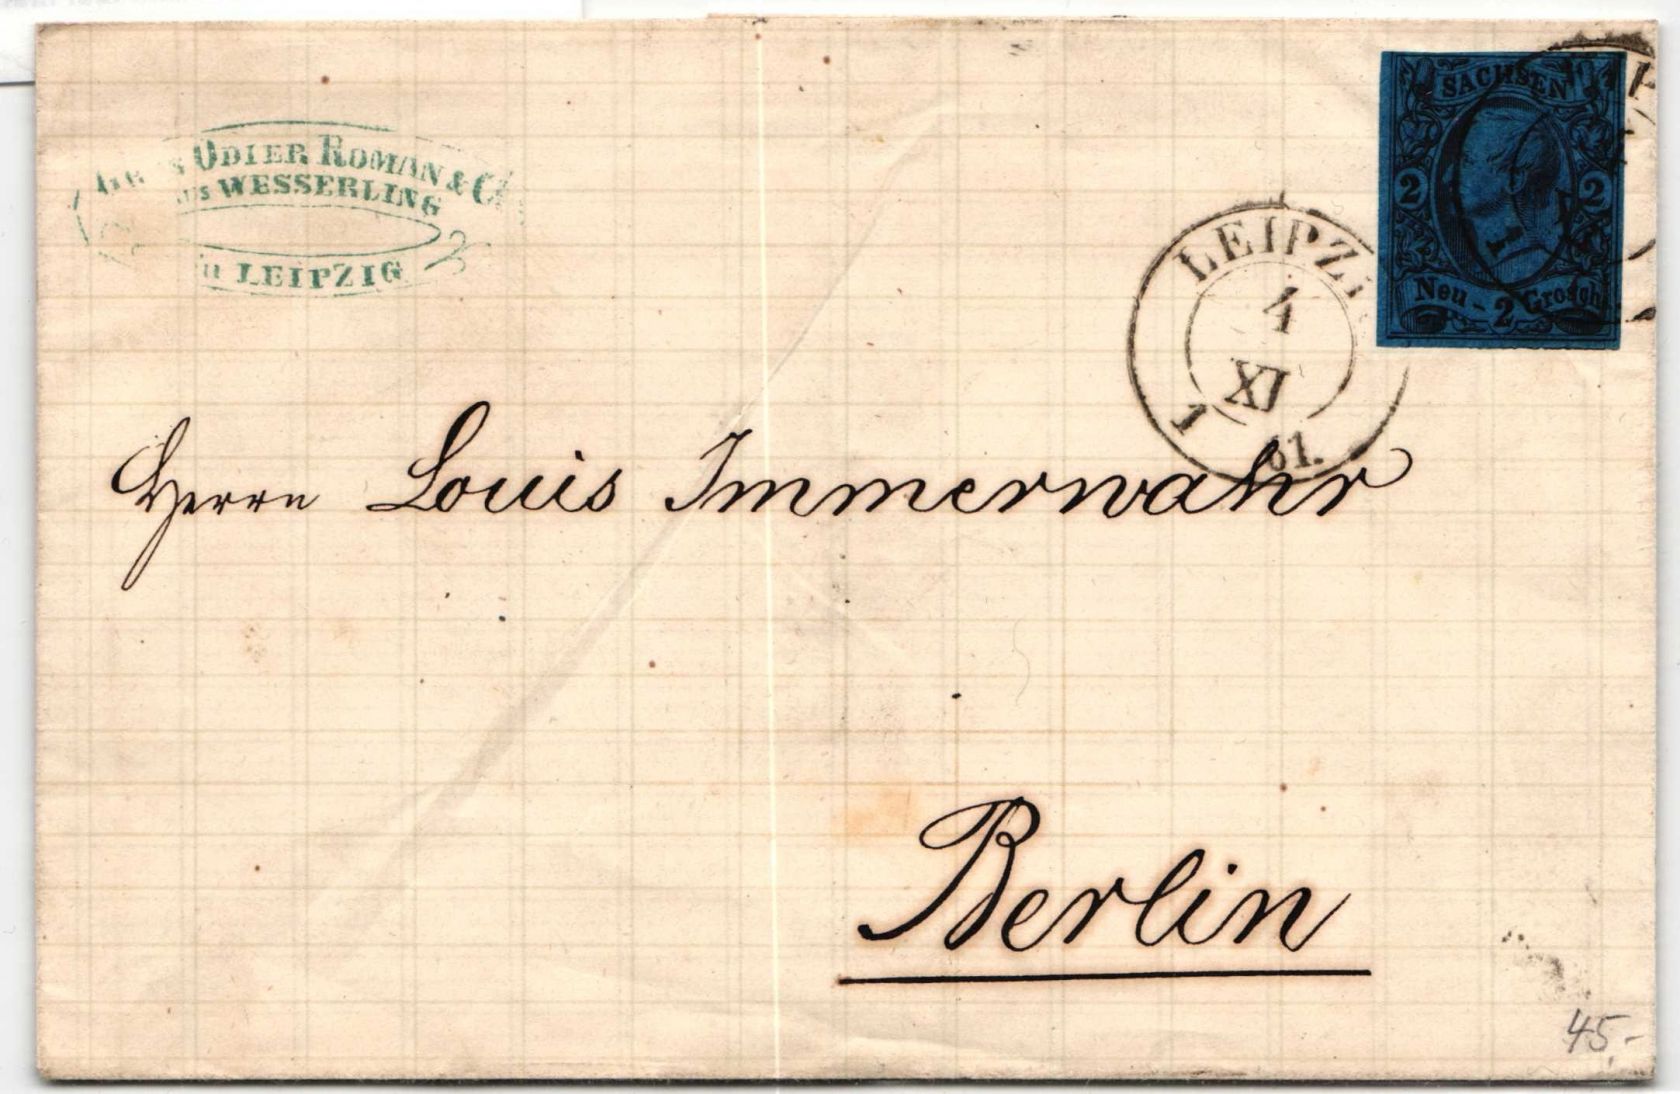 ODIER ROMAN & Cie
AUS WESSERLING
in LEIPZIG
SACHSEN
2 2
Neu - 2 Grosch
LEIPZI
4
XI
1 61.
Herrn Louis Immerwahr
Berlin
45,-